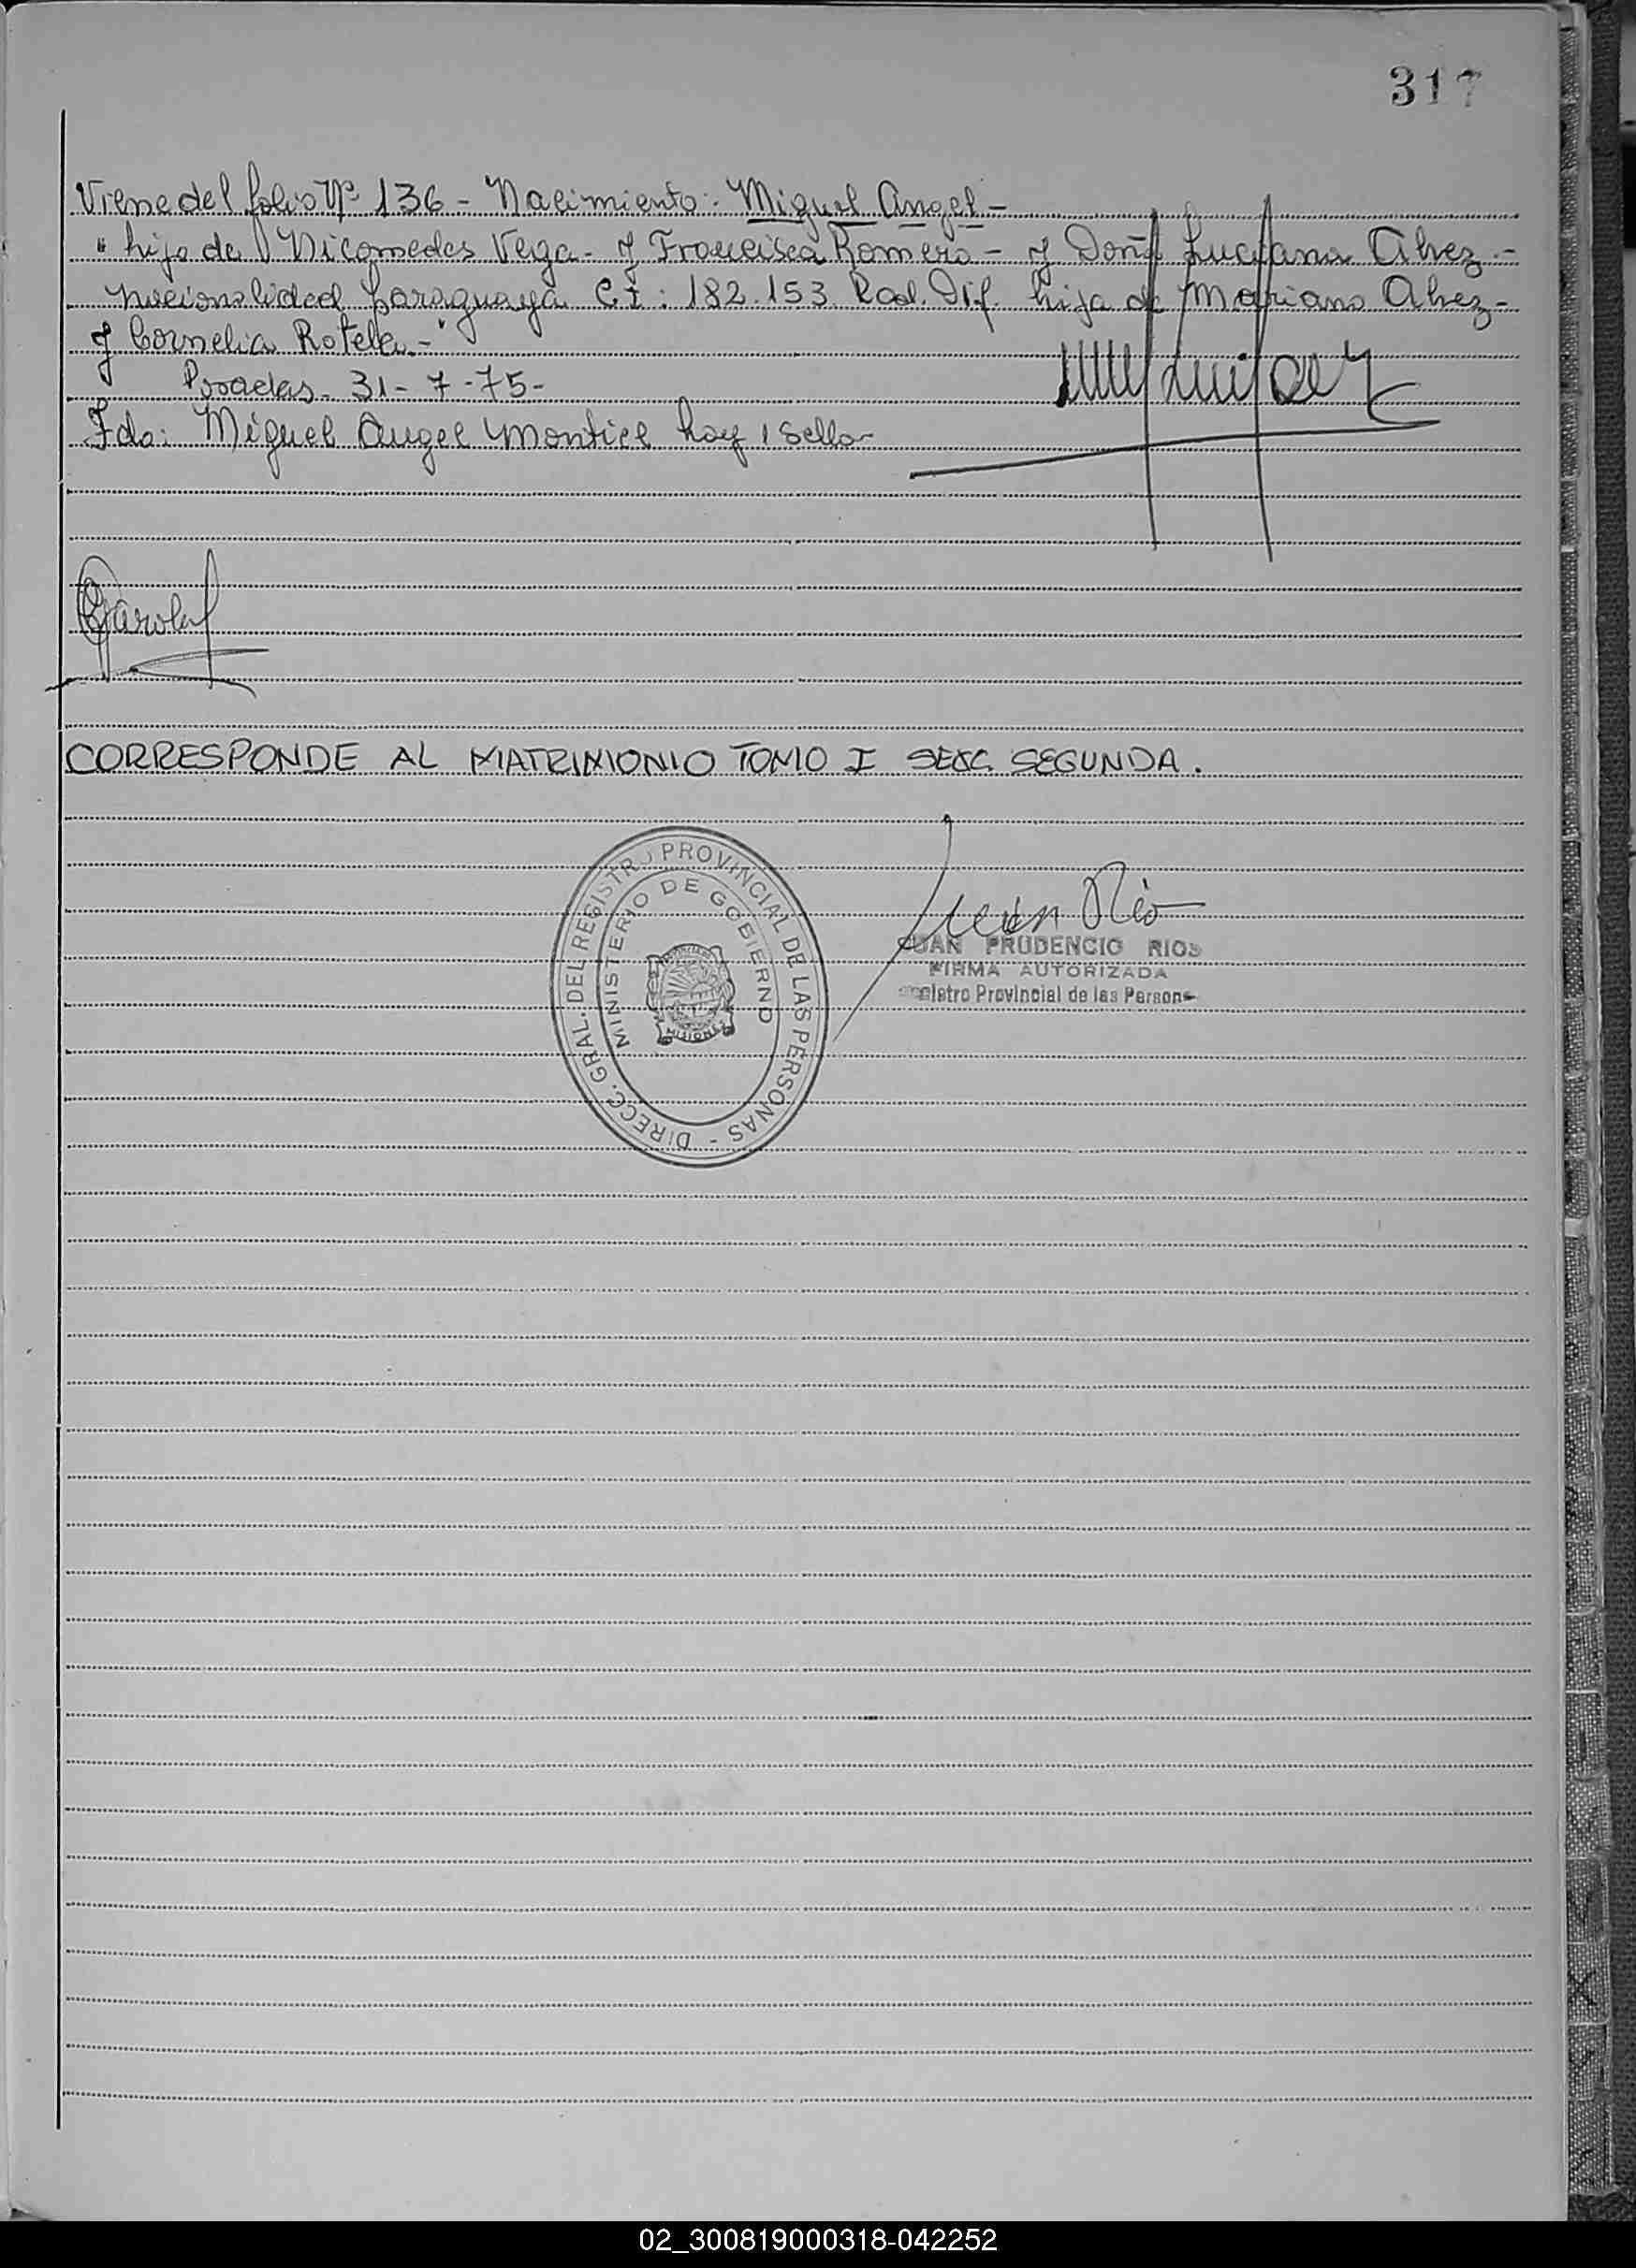 317
Viene del folio Nº 136 - Nacimiento: Miguel Angel -
" hijo de Nicomedes Vega - y Francisca Romero - y Doña Luciana Alvez -
nacionalidad paraguaya C.I: 182.153 Rad. Dif. hija de Mariano Alvez -
y Cornelia Rotela. - "
Posadas - 31 - 7 - 75 -
Fdo: Miguel Angel Montiel hay 1 sello -
CORRESPONDE AL MATRIMONIO TOMO I SECC. SEGUNDA.
DIRECC. GRAL. DEL REGISTRO PROVINCIAL DE LAS PERSONAS -
MINISTERIO DE GOBIERNO
MISIONES
JUAN PRUDENCIO RIOS
FIRMA AUTORIZADA
Registro Provincial de las Persona
02_300819000318-042252